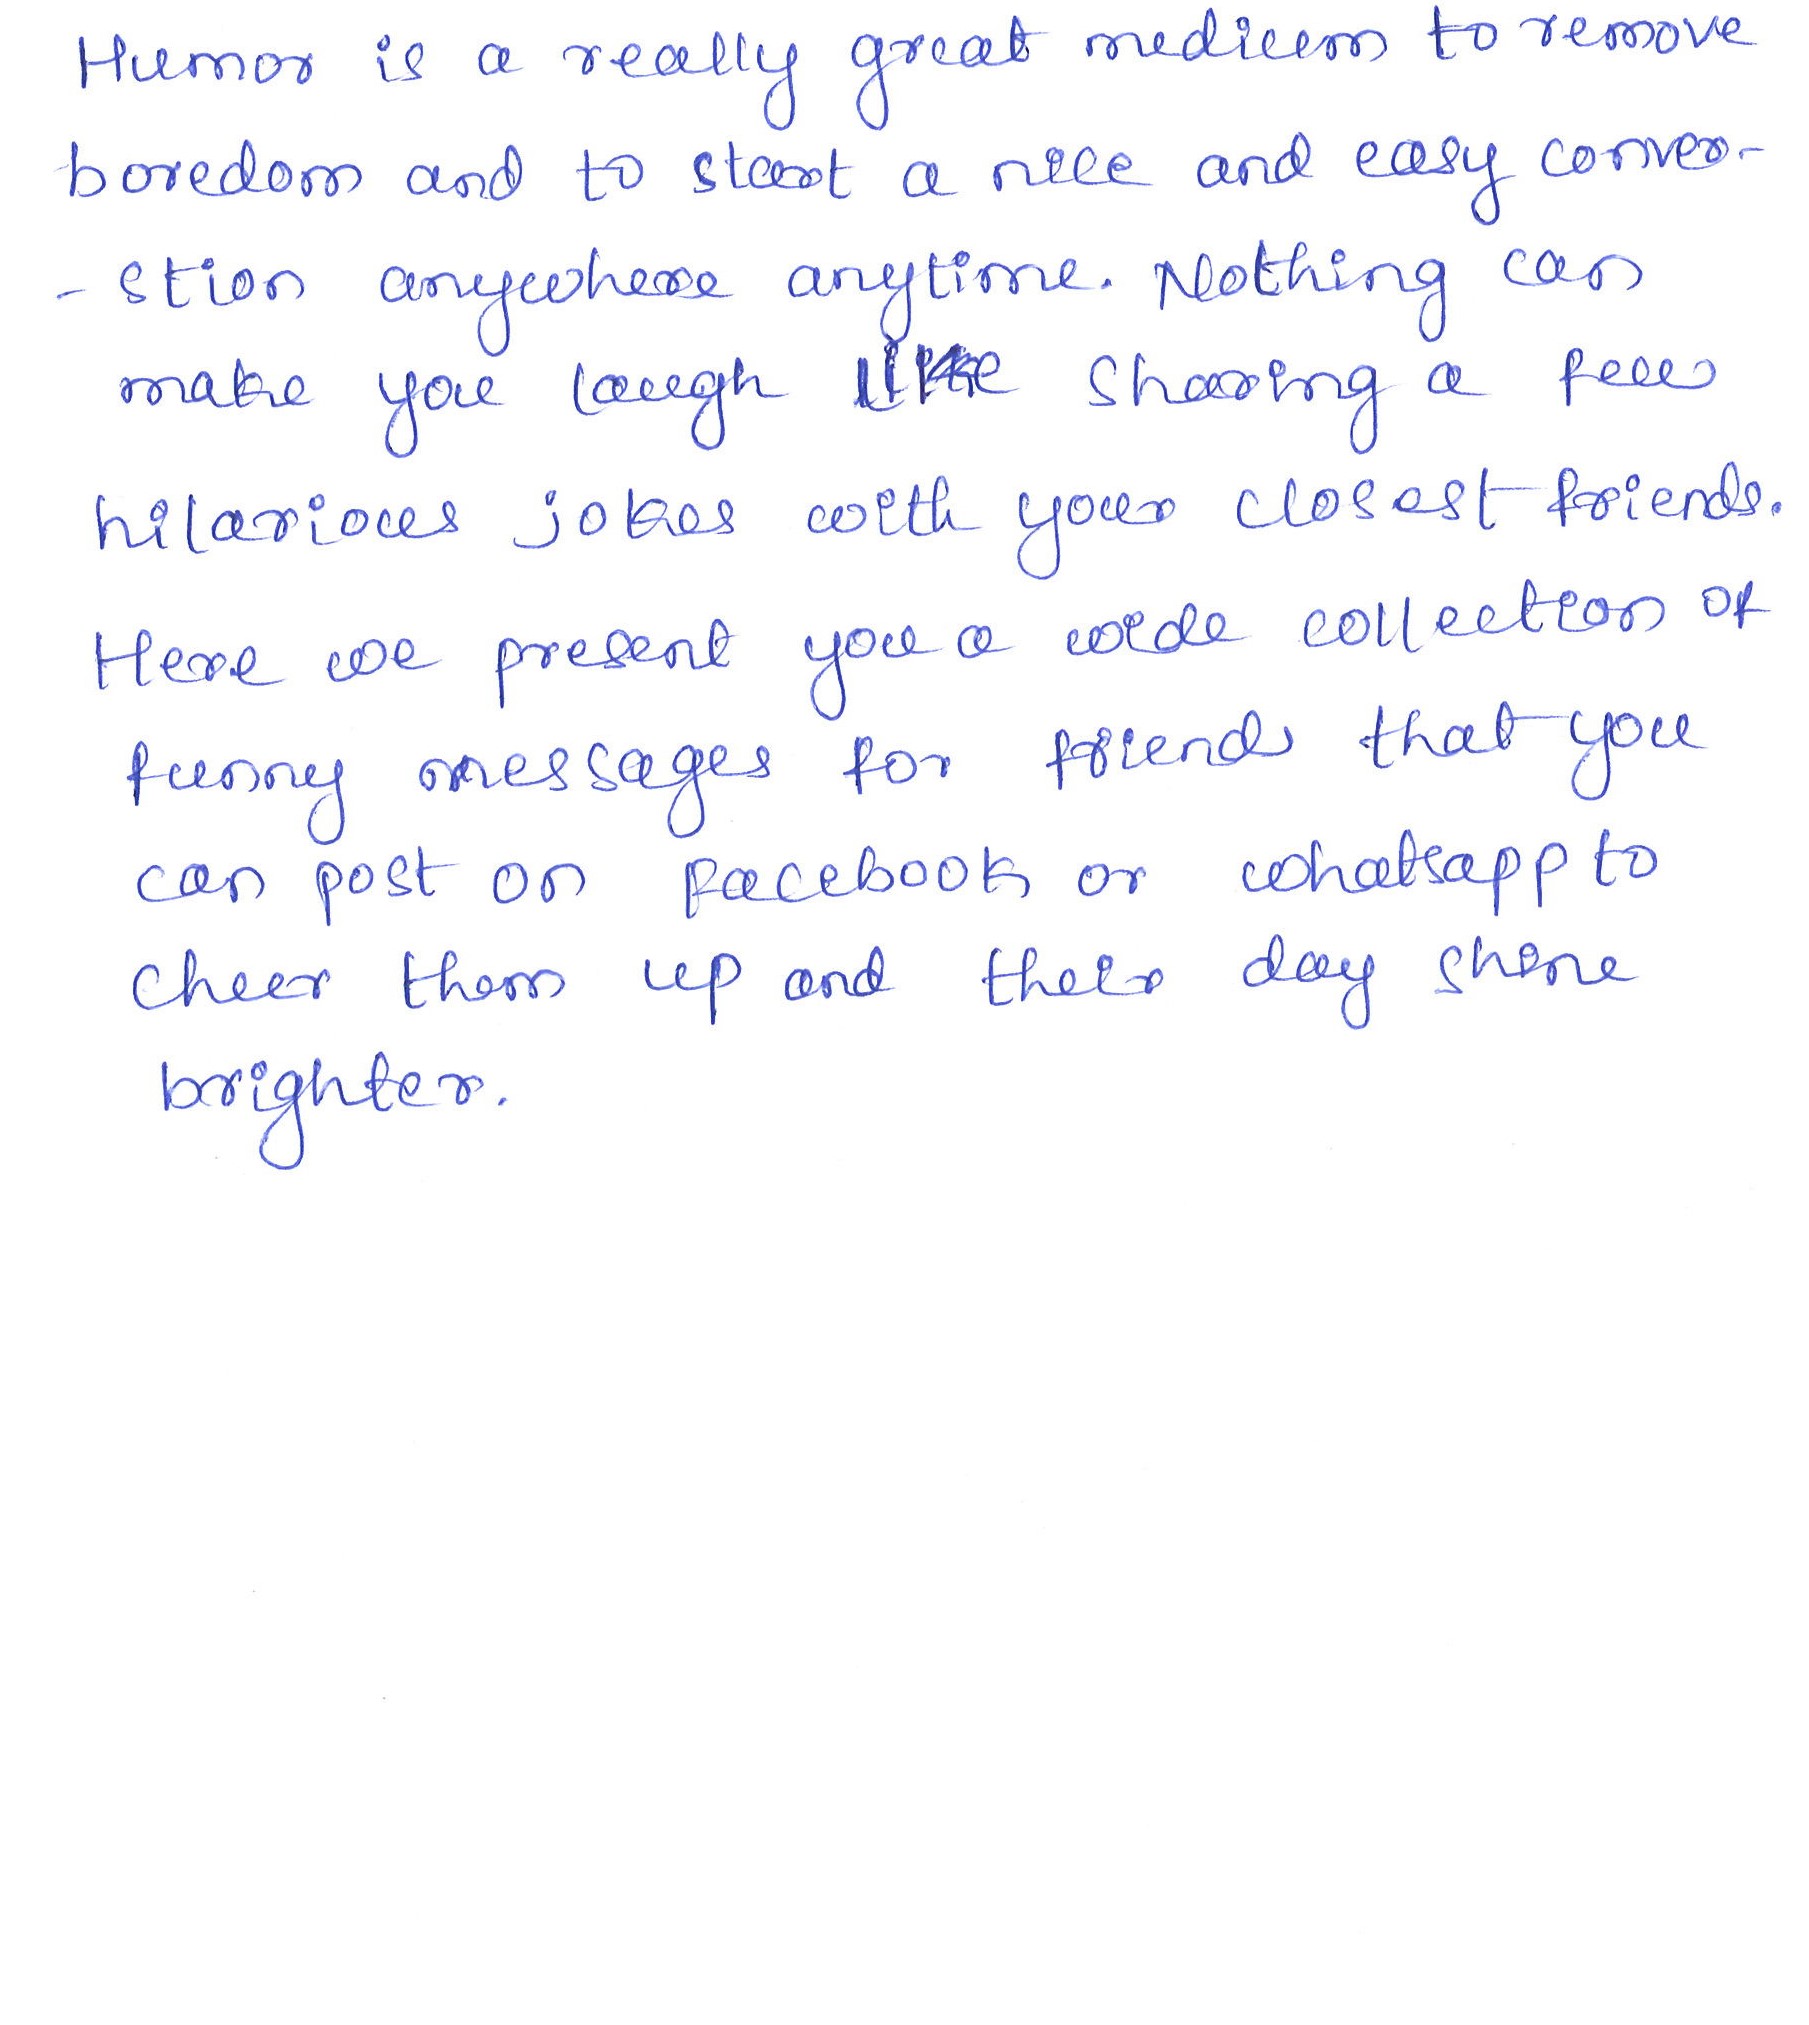 Humor is a really great medium to remove
boredom and to start a nice and easy conver-
- stion anywhere anytime. Nothing can
make you laugh like sharing a few
hilarious jokes with your closest friends.
Here we present you a wide collection of
funny messages for friends that you
can post on Facebook or whatsapp to
cheer them up and their day shine
brighter.